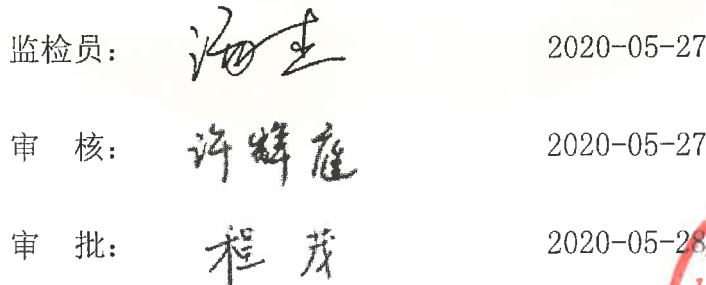 监检员： 2020-05-27
审 核： 许辉庭 2020-05-27
审 批： 程茂 2020-05-28